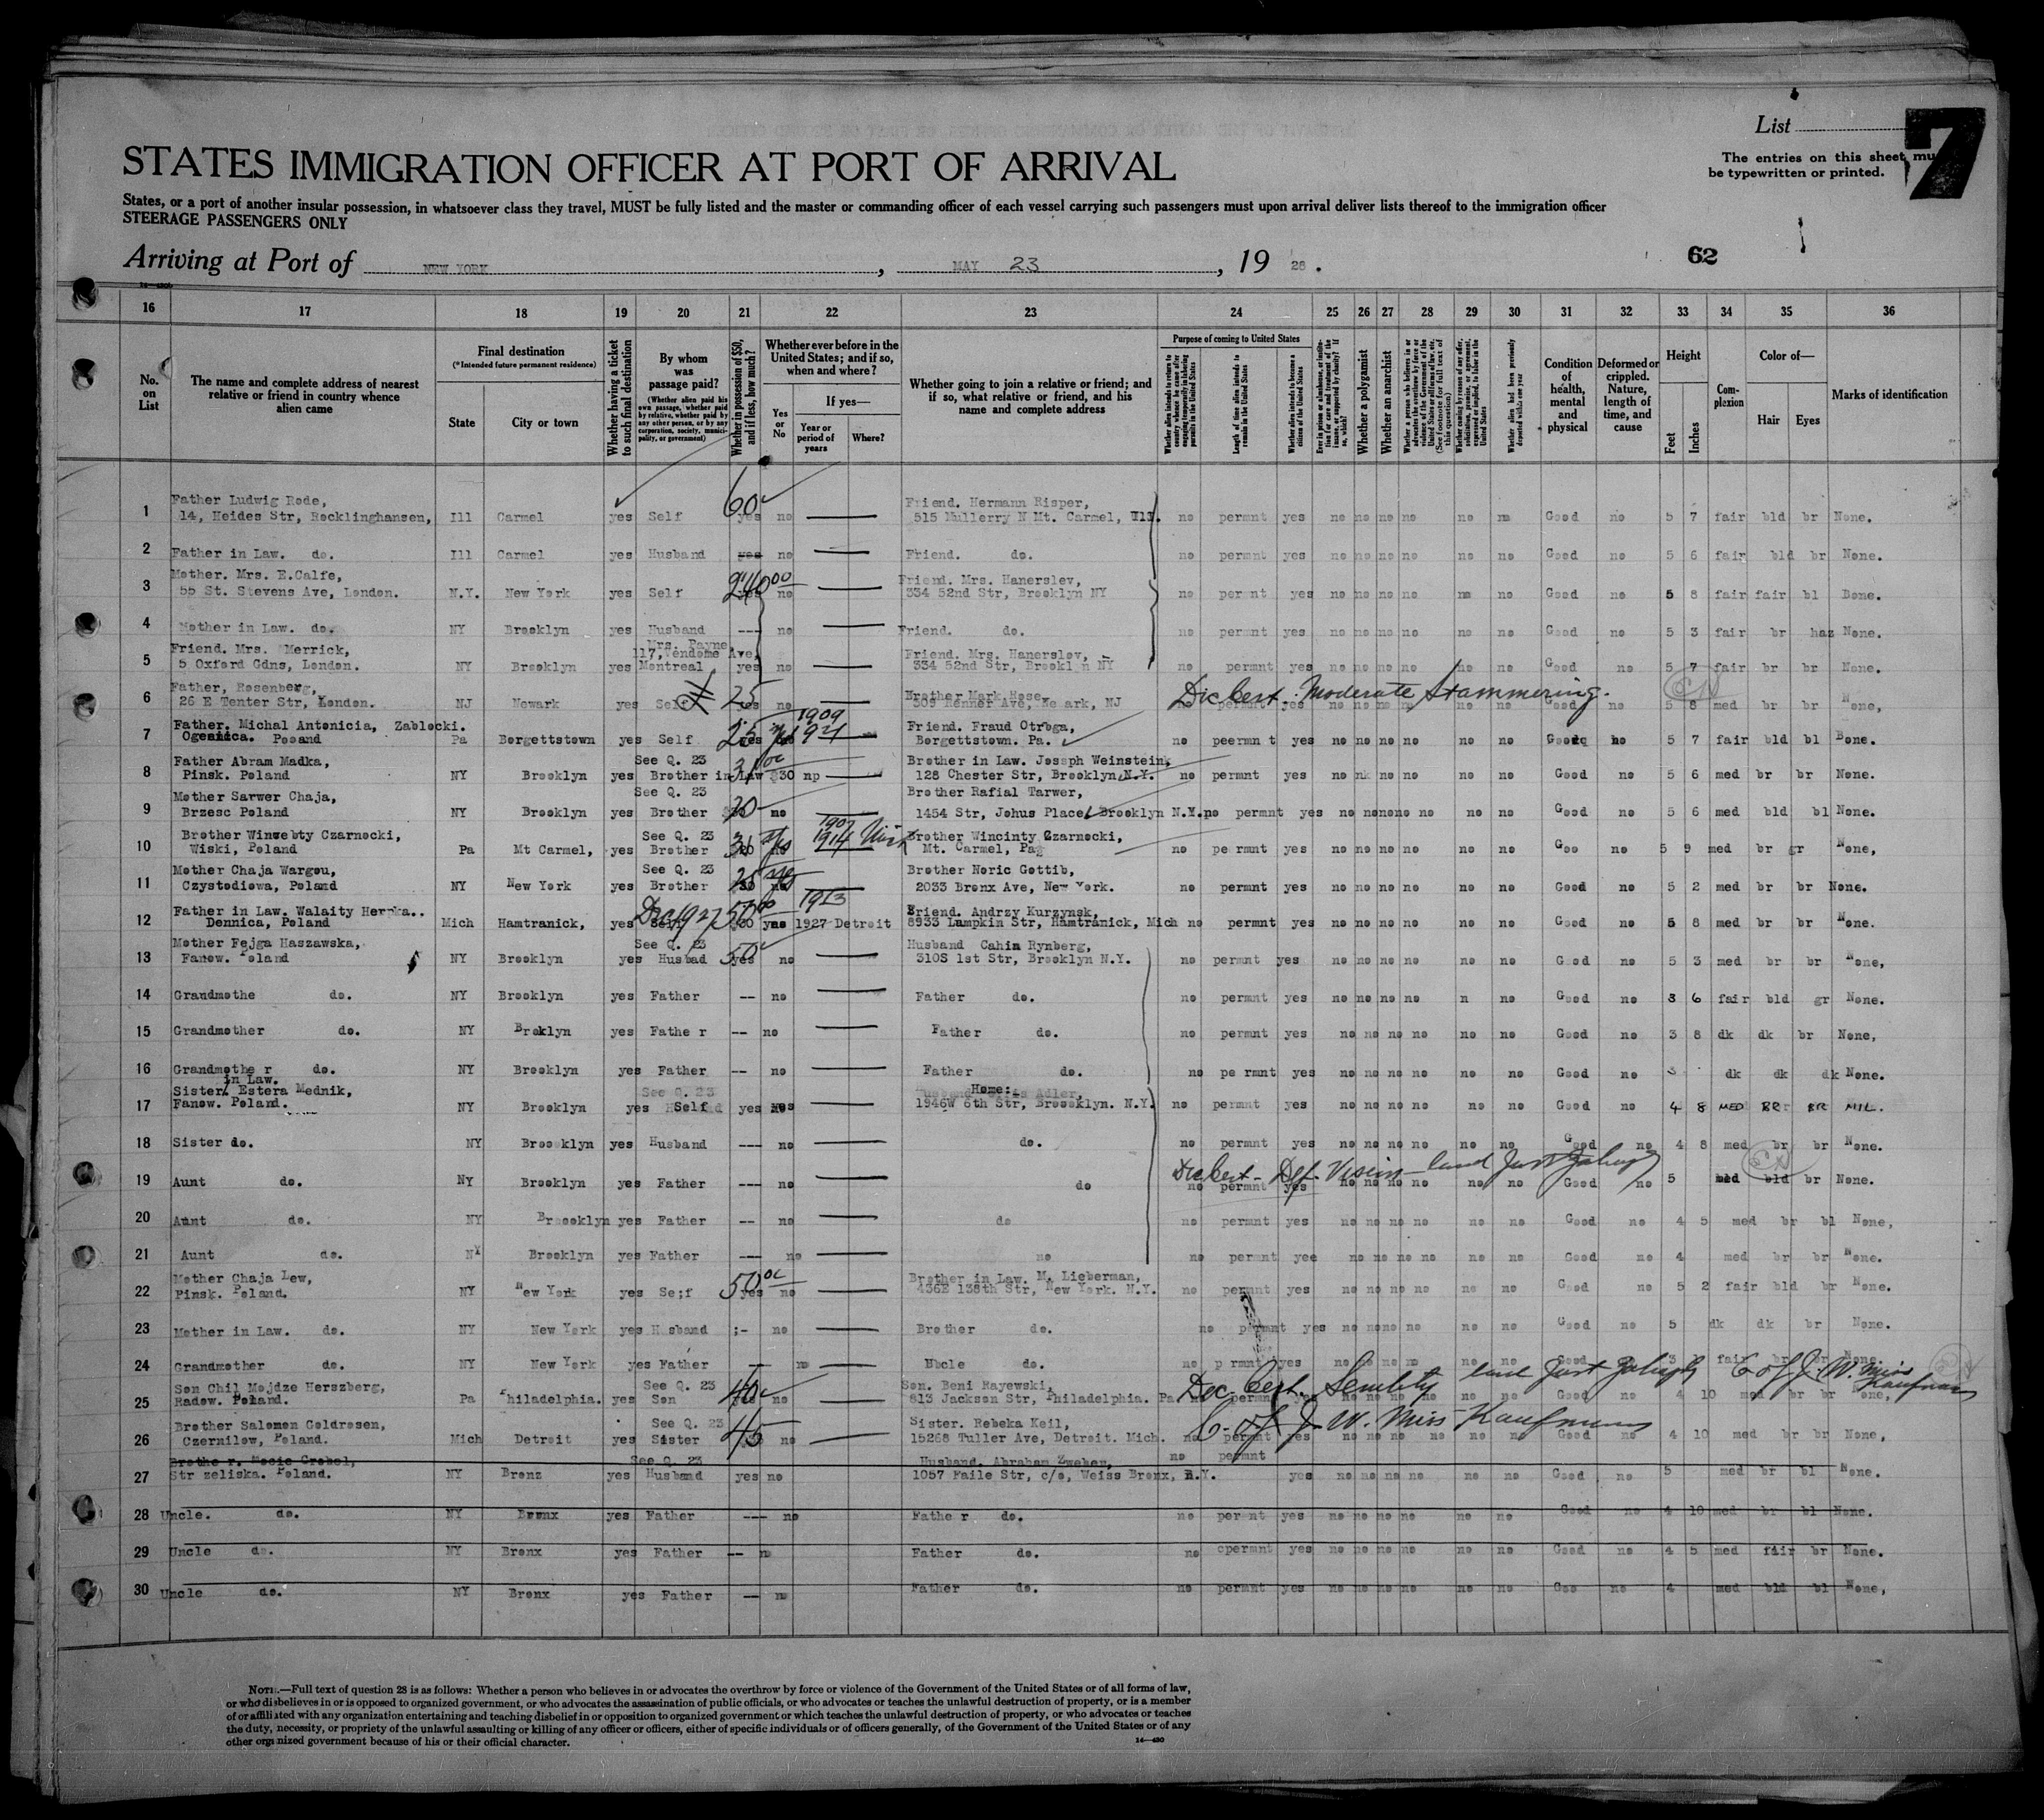 List
7
The entries on this sheet mu
be typewritten or printed.
STATES IMMIGRATION OFFICER AT PORT OF ARRIVAL
States, or a port of another insular possession, in whatsoever class they travel, MUST be fully listed and the master or commanding officer of each vessel carrying such passengers must upon arrival deliver lists thereof to the immigration officer
STEERAGE PASSENGERS ONLY
Arriving at Port of NEW YORK, MAY 23, 19 28.
62
16 17 18 19 20 21 22 23 24 25 26 27 28 29 30 31 32 33 34 35 36
No. on List
The name and complete address of nearest relative or friend in country whence alien came
Final destination
(*Intended future permanent residence)
State
City or town
Whether having a ticket to such final destination
By whom was passage paid?
(Whether alien paid his own passage, whether paid by relative, whether paid by any other person, or by any corporation, society, municipality, or government)
Whether in possession of $50, and if less, how much?
Whether ever before in the United States; and if so, when and where?
Yes or No
If yes—
Year or period of years
Where?
Whether going to join a relative or friend; and if so, what relative or friend, and his name and complete address
Purpose of coming to United States
Length of time alien intends to remain in the United States
Whether alien intends to become a citizen of the United States
Whether a polygamist
Whether an anarchist
Condition of health, mental and physical
Deformed or crippled. Nature, length of time, and cause
Height
Feet
Inches
Complexion
Color of—
Hair
Eyes
Marks of identification
1 Father Ludwig Rode,
14, Heides Str, Recklinghansen, Ill Carmel yes Self 60 yes no Friend. Hermann Risper, 515 Mullerry N Mt. Carmel, Ill. no permnt yes no no no no no no Good no 5 7 fair bld br None.
2 Father in Law. do. Ill Carmel yes Husband yes no Friend. do. no permnt yes no no no no no no Good no 5 6 fair bld br None.
3 Mother. Mrs. E.Calfe,
55 St. Stevens Ave, London. N.Y. New York yes Self yes no Friend. Mrs. Hanerslev, 334 52nd Str, Brooklyn NY no permnt yes no no no no no no Good no 5 8 fair fair bl Bone.
4 Mother in Law. do. NY Brooklyn yes Husband --- no Friend. do. no permnt yes no no no no no no Good no 5 3 fair br haz None.
5 Friend. Mrs. Merrick,
5 Oxford Gdns, London. NY Brooklyn yes Mrs. Payne 117, Vendome Ave, Montreal yes no Friend. Mrs. Hanerslov, 334 52nd Str, Brookl n NY no permnt yes no no no no no no Good no 5 7 fair br br None.
6 Father, Rosenberg,
26 E Tenter Str, London. NJ Newark yes Self 25 yes no Brother Mark Hose 309 Renner Ave, Ne ark, NJ Moderate Stammering. no permnt yes no no no no no no Good no 5 8 med br br None,
7 Father. Michal Antonicia, Zablocki.
Poland Pa Borgettstown yes Self 25 yes 1909 1921 Friend. Fraud Otroga, Bergettstown. Pa. no peermn t yes no no no no no no Good no 5 7 fair bld bl Bone.
8 Father Abram Madka,
Pinsk. Poland NY Brooklyn yes See Q. 23 Brother in Law $30 np Brother in Law. Jossph Weinstein, 128 Chester Str, Brooklyn N.Y. no permnt yes no nk no no no no Good no 5 6 med br br None.
9 Mother Sarwer Chaja,
Brzesc Poland NY Brooklyn yes See Q. 23 Brother 30 no Brother Rafial Tarwer, 1454 Str, Johus Place, Brooklyn N.Y. no permnt yes no no no no no no Good no 5 6 med bld bl None.
10 Brother Winwebty Czarnocki,
Wiski, Poland Pa Mt Carmel, yes See Q. 23 Brother yes 1907 1914 Brother Wincinty Czarnocki, Mt. Carmel, Pa no permnt yes no no no no no no Goo no 5 9 med br gr None,
11 Mother Chaja Wargou,
Czystodiowa, Poland NY New York yes See Q. 23 Brother 25 Brother Noric Gottib, 2033 Bronx Ave, New York. no permnt yes no no no no no no Good no 5 2 med br br None.
12 Father in Law. Walaity
Dennica, Poland Mich Hamtranick, yes Dec 1927 50 yes 1913 1927 Detroit Friend. Andrzy Kurzynsk, 8933 Lampkin Str, Hamtranick, Mich no permnt yes no no no no no no Good no 5 8 med br br None.
13 Mother Fejga Haszawska,
Fanow. Poland NY Brooklyn yes See Q. 23 Husbad 50 yes no Husband Cahin Rynberg, 310S 1st Str, Brooklyn N.Y. no permnt yes no no no no no no Good no 5 3 med br br None,
14 Grandmothe do. NY Brooklyn yes Father -- no Father do. no permnt yes no no no no n no Good no 3 6 fair bld gr None.
15 Grandmother do. NY Broklyn yes Fathe r -- no Father do. no permnt yes no no no no no no Good no 3 8 dk dk br None,
16 Grandmothe r do. NY Brooklyn yes Father -- no Father do. no pe rmnt yes no no no no no no Good no 3 dk dk dk None.
17 Sister in Law. Estera Mednik,
Fanow. Poland. NY Brooklyn yes See Q. 23 Self yes Home: 1946W 6th Str, Broooklyn. N.Y. no permnt yes no no no no no no Good no 4 8 MED BR BR MIL.
18 Sister do. NY Brooklyn yes Husband --- no do. no permnt yes no no no no no no Good no 4 8 med br br None.
19 Aunt do. NY Brooklyn yes Father --- no do Def. Vision no permnt yes no no no no no no Good no 5 bld br None.
20 Aunt do. NY Brooooklyn yes Father -- no do no permnt yes no no no no no no Good no 4 5 med br bl None,
21 Aunt do. NY Brooklyn yes Father --- no no no permnt yee no no no no no no Good no 4 med br br None.
22 Mother Chaja Lew,
Pinsk. Poland. NY New York yes Se;f 50 yes no Brother in Law. M. Lieberman, 436E 138th Str, New York. N.Y. no permnt yes no no no no no no Good no 5 2 fair bld br None.
23 Mother in Law. do. NY New York yes Husband ;- no Brother do. no permnt yes no no no no no no Good no 5 dk dk br None.
24 Grandmother do. NY New York yes Father no Uncle do. no p rmnt yes no no no no no no Good no 3 fair br br None
25 Son Chil Mojdze Herszberg,
Radow. Poland. Pa Philadelphia. yes See Q. 23 Son 40 yes no Son. Beni Rayewski, 813 Jackson Str, Philadelphia. Pa Senility Good no 4 10 med br br None,
26 Brother Salomon Goldrosen,
Czernilow, Poland. Mich Detroit yes See Q. 23 Sister 45 no Sister. Rebeka Keil, 15268 Tuller Ave, Detroit. Mich. no permnt yes no no no no no no Good no 4 10 med br br None,
27 Brothe r. Mocie Grobel,
Str zeliska. Poland. NY Bronz yes See Q. 23 Husband yes no Husband. Abraham Zweber, 1057 Faile Str, c/o, Weiss Bronx, N.Y. no permnt yes no no no no no no Good no 5 med br bl None.
28 Uncle. do. NY Bronx yes Father --- no Fathe r do. no permnt yes no no no no no no Good no 4 10 med br bl None.
29 Uncle do. NY Bronx yes Father -- n Father do. no cpermnt yes no no no no no no Good no 4 5 med fair br None.
30 Uncle do. NY Bronx yes Father -- no Father do. no permnt yes no no no no no no Goo no 4 med bld bl None,
NOTE.—Full text of question 28 is as follows: Whether a person who believes in or advocates the overthrow by force or violence of the Government of the United States or of all forms of law,
or who disbelieves in or is opposed to organized government, or who advocates the assassination of public officials, or who advocates or teaches the unlawful destruction of property, or is a member
of or affiliated with any organization entertaining and teaching disbelief in or opposition to organized government or which teaches the unlawful destruction of property, or who advocates or teaches
the duty, necessity, or propriety of the unlawful assaulting or killing of any officer or officers, either of specific individuals or of officers generally, of the Government of the United States or of any
other organized government because of his or their official character.
14—430